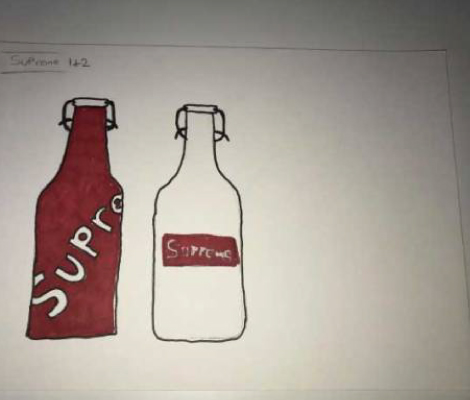 Supreme 1+2
Supre
Supreme